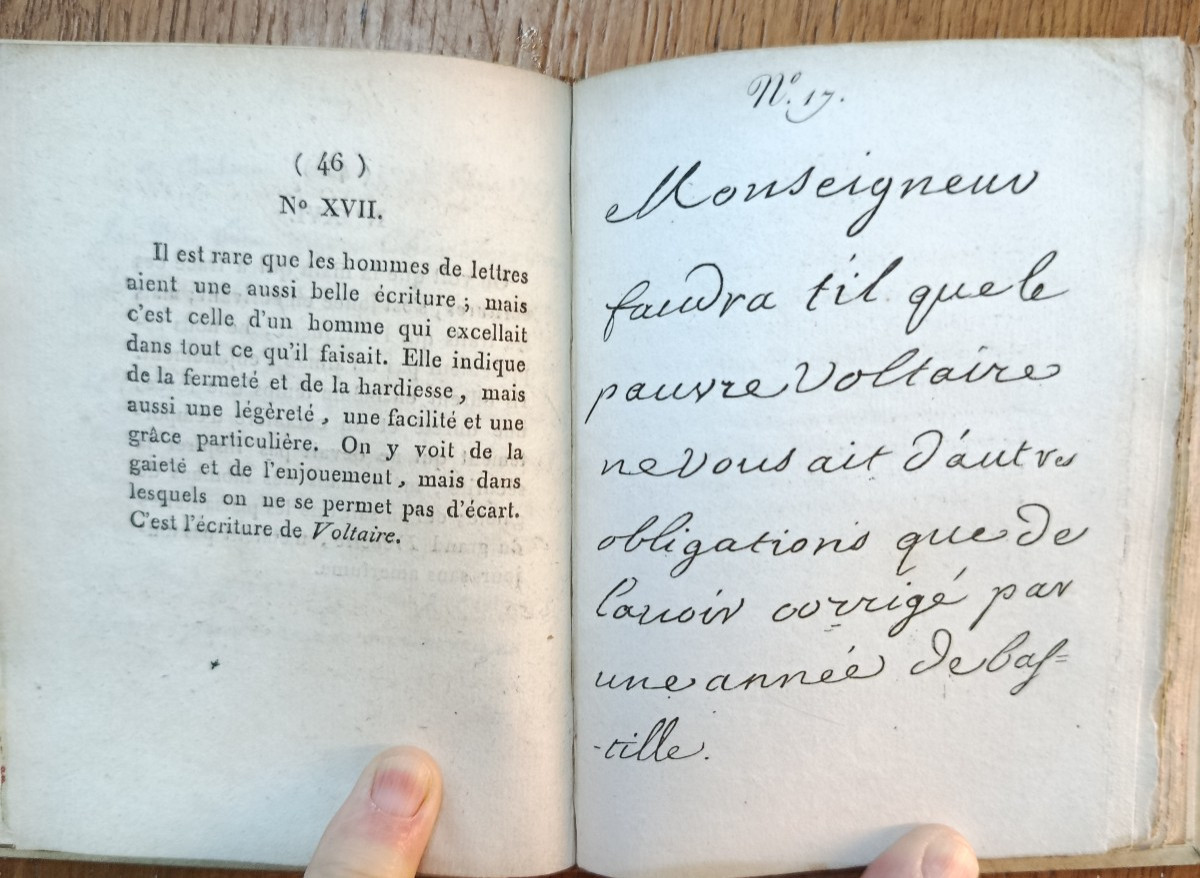 ( 46 )
Nº XVII.
Il est rare que les hommes de lettres
aient une aussi belle écriture ; mais
c'est celle d'un homme qui excellait
dans tout ce qu'il faisait. Elle indique
de la fermeté et de la hardiesse, mais
aussi une légèreté, une facilité et une
grâce particulière. On y voit de la
gaieté et de l'enjouement, mais dans
lesquels on ne se permet pas d'écart.
C'est l'écriture de Voltaire.
Nº. 17.
Monseigneur
faudra til que le
pauvre Voltaire
ne vous ait d'áutres
obligations que de
lauoir corrigé par
une année de baſ=
-tille.